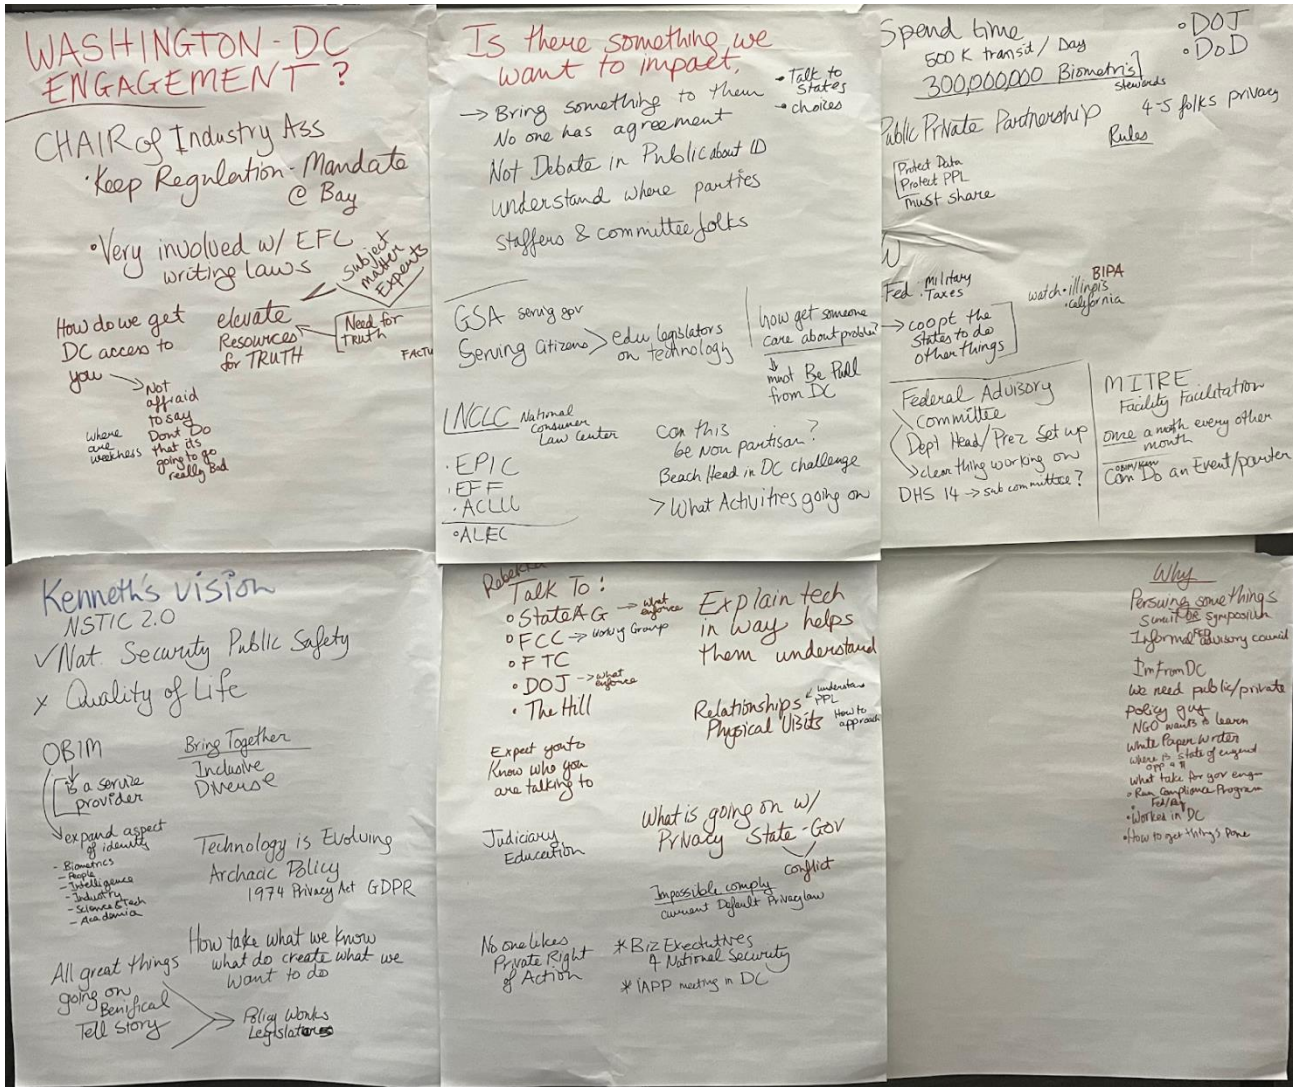 WASHINGTON-DC
ENGAGEMENT?
CHAIR of Industry Ass
• Keep Regulation - Mandate
@ Bay
• Very involved w/ EFL
writing laws
Subject
matter
Experts
How do we get
DC access to
you
elevate
Resources
for TRUTH
Need for
TRUTH
FACTU
Not
affraid
to say
Dont Do
that its
going to go
really Bad
where
are
weekness
Is there something we
want to impact.
→ Bring something to them
No one has agreement
• Talk to
States
• choices
Not Debate in Public about ID
understand where parties
staffers & committee folks
GSA serving gov
Serving Citizens > edu legislators
on technology
how get someone
care about problem?
must Be Pull
from DC
NCLC National
Consumer
Law Center
• EPIC
• EFF
• ACLU
• ALEC
Can this
be Non partisan?
Beach Head in DC challenge
> What Activities going on
Spend time
500 K transit / Day
300,000,000 Biometris
Stewards
• DOJ
• DoD
Public Private Partnership
4-5 folks privacy
Rules
Protect Data
Protect PPL
must share
W
Fed • Military
• Taxes
BIPA
watch • illinois
• california
→ coopt the
States to do
other things
Federal Advisory
Committee
Dept Head/Prez Set up
> clear thing working on
DHS 14 → sub committee?
MITRE
Facility Facilitation
once a moth every other
month
Can Do an Event/
Kenneth's vision
NSTIC 2.0
✓ Nat. Security Public Safety
x Quality of Life
OBIM
is a service
provider
expand aspect
of identity
- Biometrics
- People
- Intelligence
- Industry
- Science & Tech
- Academia
Bring Together
Inclusive
Diverse
Technology is Evolving
Archacic Policy
1974 Privacy Act GDPR
How take what we know
what do create what we
want to do
All great things
going on
Benifical
Tell Story
→ Policy Works
Talk To:
• State AG → what
enforce
• FCC → Working Group
• FTC
• DOJ → what
enforce
• The Hill
Explain tech
in way helps
them understand
Relationships
Physical Visits
understand
PPL
How to
approach
Expect you to
Know who you
are talking to
Judiciary
Education
What is going on w/
Privacy State - Gov
Conflict
Impossible comply
current Default Privacy law
No one likes
Private Right
of Action
* Biz Executives
4 National Security
* iAPP meeting in DC
Why
Persuing somethings
Symposium
Informal advisory council
Im from DC
we need public/private
policy guy
NGO wants to learn
white Paper Writer
where is state of
what take for gov
• Run Compliance Program
• Worked in DC
• How to get things Done